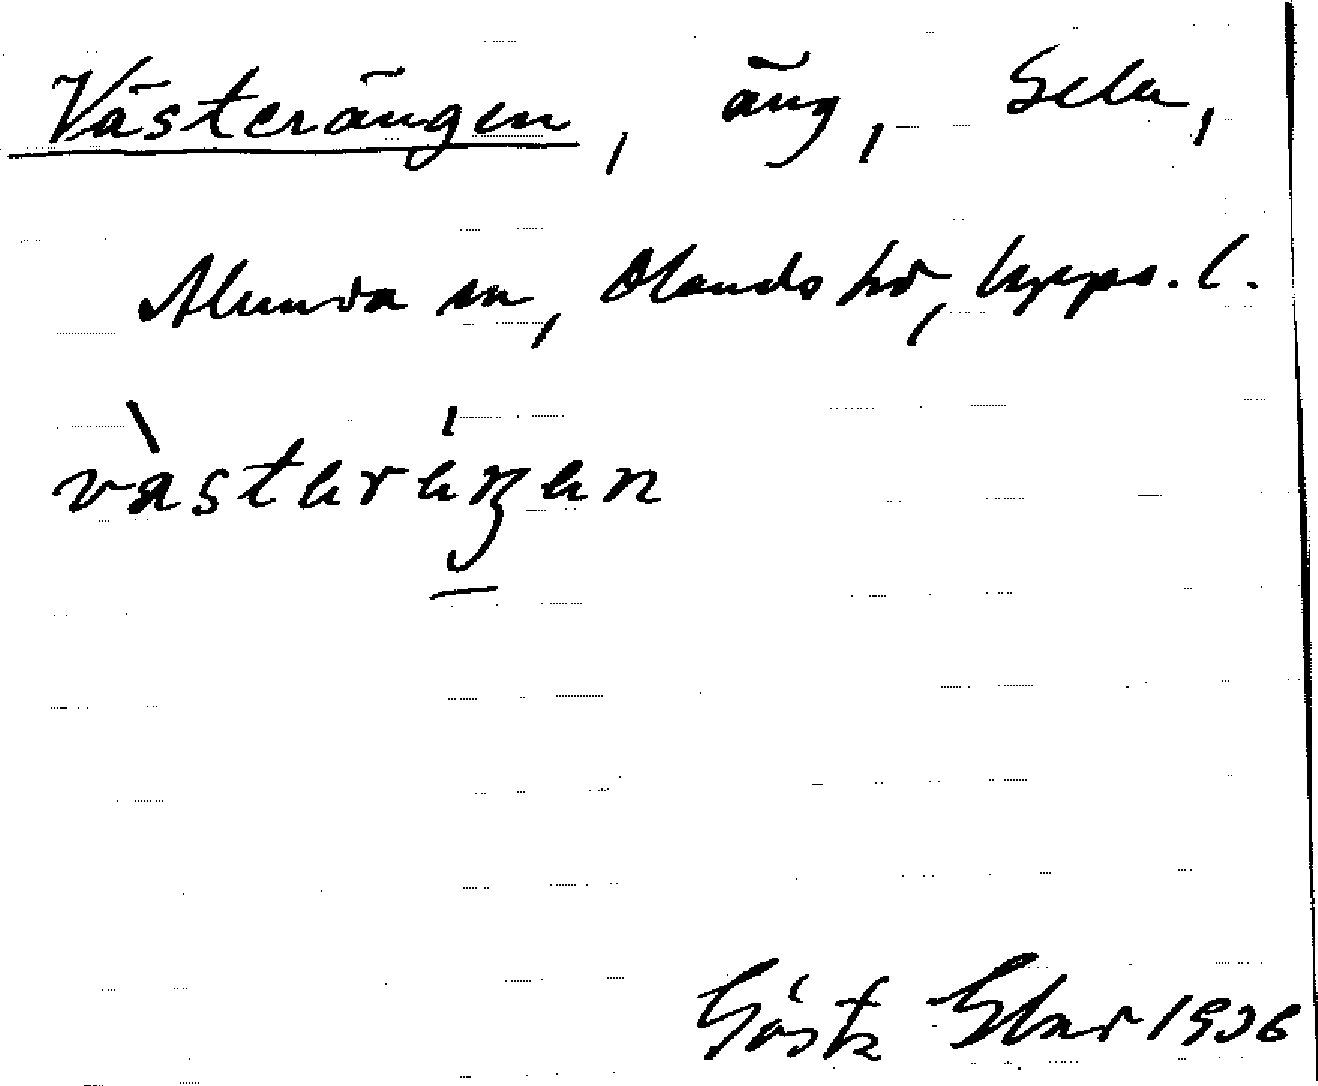 Västerängen, äng, Sela,
Alunda sn, Olands hd, Upps. l.
västeräŋen
Gösta 1936